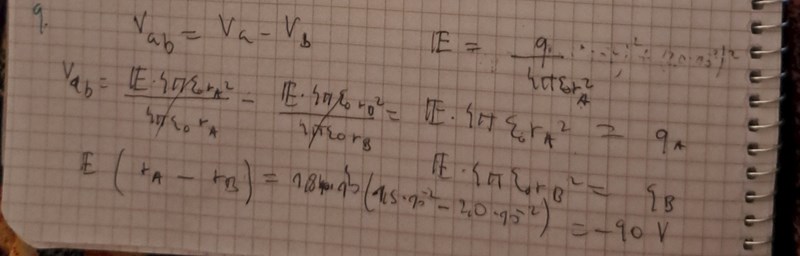 9.
V_ab = V_a - V_B
E = q / 4πε₀r_A²
V_ab = E·4πε₀r_A² / 4πε₀r_A - E·4πε₀r_B² / 4πε₀r_B =
E·4πε₀r_A² = q_A
E·4πε₀r_B² = q_B
E (r_A - r_B) = (1,5·10⁻² - 2,0·10⁻²) = -90 V